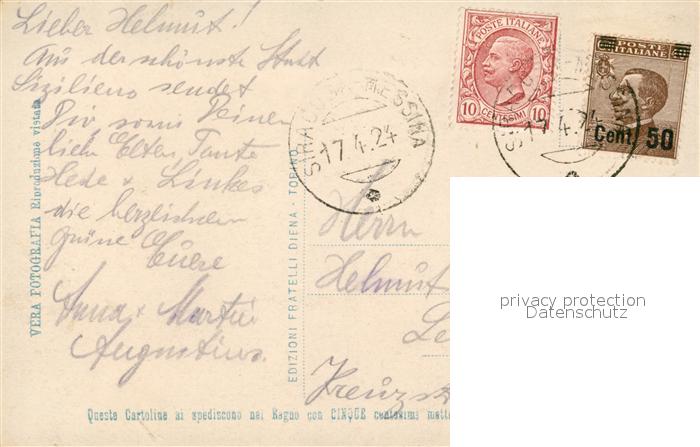 Lieber Helmut!
Aus der schönsten Stadt
Siziliens sendet
Dir sowie Deinen
lieben Eltern, Tante
Hede u. Linkes
die herzlichsten
Grüsse Euere
Anna u. Martin
Augustins.
VERA FOTOGRAFIA Riproduzione vietata
EDIZIONI FRATELLI DIENA - TORINO
POSTE ITALIANE
10 CENTESIMI 10
POSTE ITALIANE
Cent. 50
MESSINA
17.4.24
17.4.24
Herrn
Helmut
Kreuzst
privacy protection
Datenschutz
Queste Cartoline si spediscono nel Regno con CINQUE centesimi mett